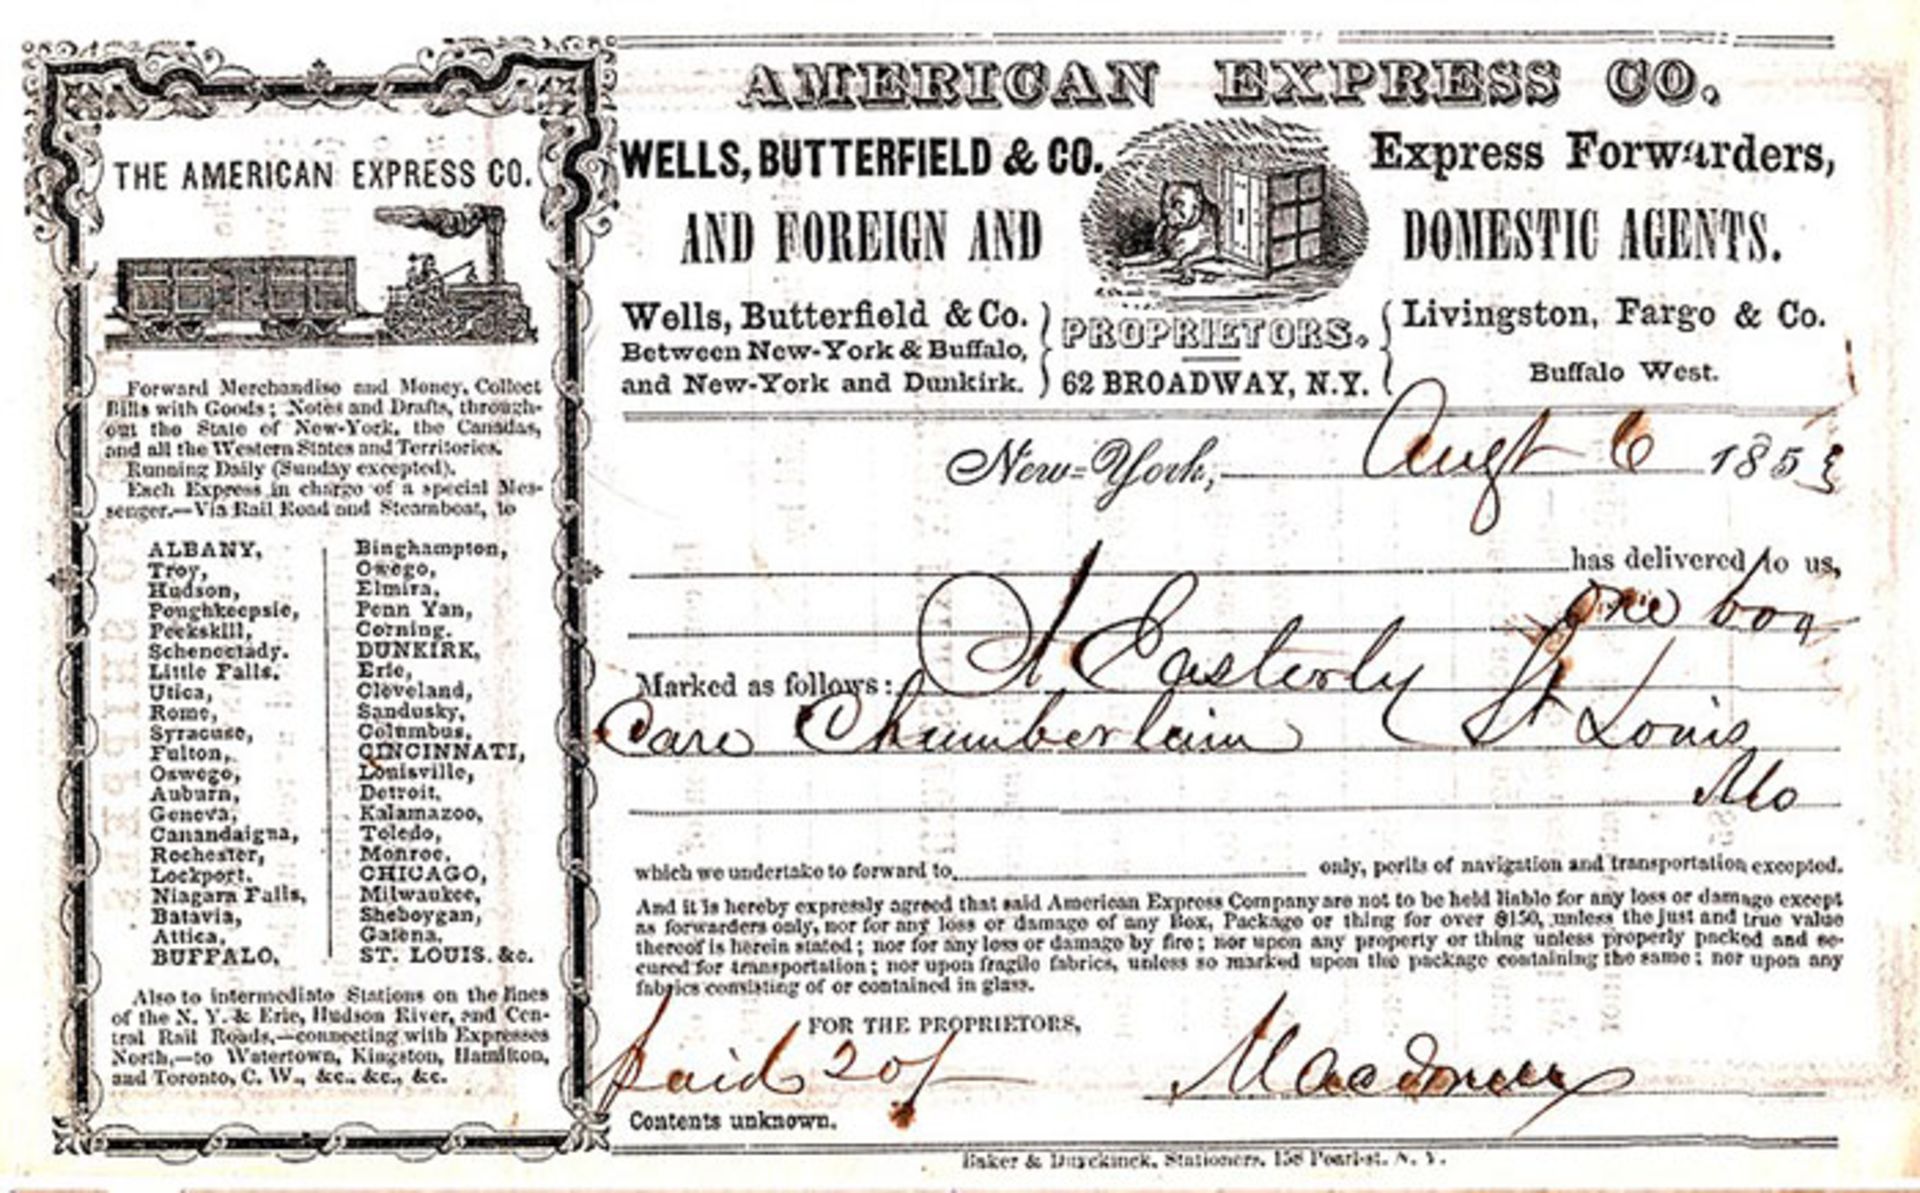 THE AMERICAN EXPRESS CO.
Forward Merchandise and Money, Collect
Bills with Goods; Notes and Drafts, through-
out the State of New-York, the Canadas,
and all the Western States and Territories.
Running Daily (Sunday excepted).
Each Express in charge of a special Mes-
senger.—Via Rail Road and Steamboat, to
ALBANY,
Troy,
Hudson,
Poughkeepsie,
Peekskill,
Schenectady.
Little Falls.
Utica,
Rome,
Syracuse,
Fulton,
Oswego,
Auburn,
Geneva,
Canandaigna,
Rochester,
Lockport.
Niagara Falls,
Batavia,
Attica,
BUFFALO,
Binghampton,
Owego,
Elmira,
Penn Yan,
Corning.
DUNKIRK,
Erie,
Cleveland,
Sandusky,
Columbus,
CINCINNATI,
Louisville,
Detroit,
Kalamazoo,
Toledo,
Monroe,
CHICAGO,
Milwaukee,
Sheboygan,
Galena,
ST. LOUIS. &c.
Also to intermediate Stations on the lines
of the N. Y. & Erie, Hudson River, and Cen-
tral Rail Roads,—connecting with Expresses
North,—to Watertown, Kingston, Hamilton,
and Toronto, C. W., &c., &c., &c.
AMERICAN EXPRESS CO.
WELLS, BUTTERFIELD & CO. Express Forwarders,
AND FOREIGN AND DOMESTIC AGENTS.
Wells, Butterfield & Co.
Between New-York & Buffalo,
and New-York and Dunkirk.
PROPRIETORS.
62 BROADWAY, N.Y.
Livingston, Fargo & Co.
Buffalo West.
New-York, Augt 6 1853
has delivered to us,
one box
Marked as follows: A Easterly
Care Chamberlain St Louis
Mo
which we undertake to forward to only, perils of navigation and transportation excepted.
And it is hereby expressly agreed that said American Express Company are not to be held liable for any loss or damage except
as forwarders only, nor for any loss or damage of any Box, Package or thing for over $150, unless the just and true value
thereof is herein stated; nor for any loss or damage by fire; nor upon any property or thing unless properly packed and se-
cured for transportation; nor upon fragile fabrics, unless so marked upon the package containing the same; nor upon any
fabrics consisting of or contained in glass.
FOR THE PROPRIETORS,
paid 20/
Contents unknown.
Baker & Duyckinck, Stationers, 158 Pearl-st. N. Y.